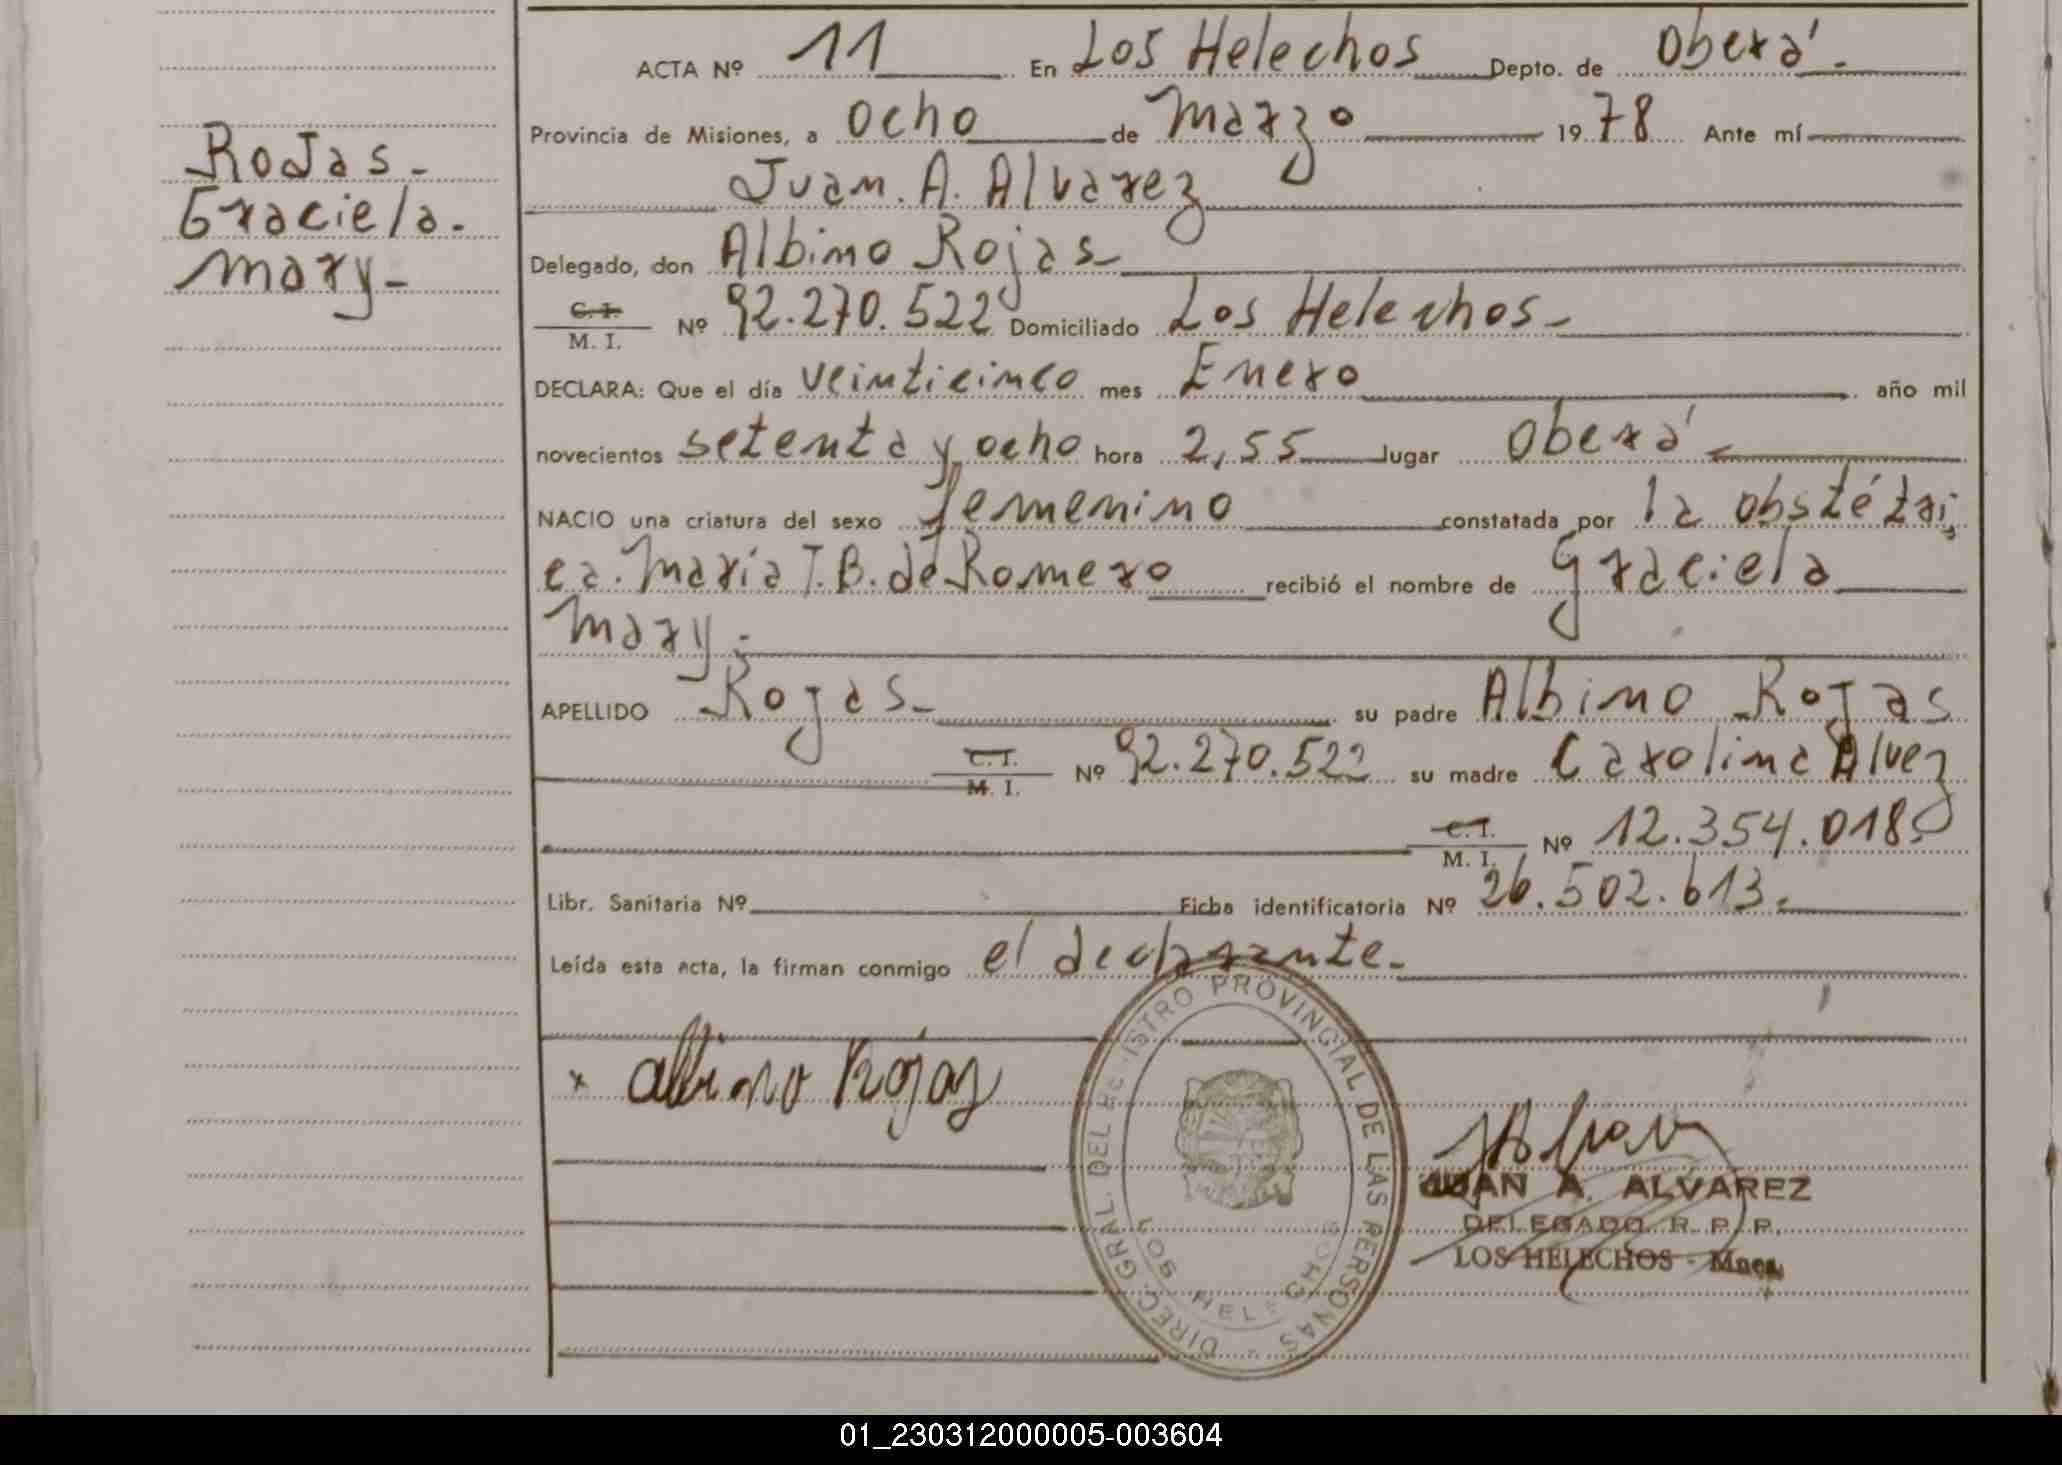 Rojas-
Graciela.
Mary-
ACTA Nº 11 En Los Helechos Depto. de Oberá.
Provincia de Misiones, a ocho de Marzo 1978 Ante mí
Juan. A. Alvarez
Delegado, don Albino Rojas-
C. I.
M. I. Nº 92.270.522 Domiciliado Los Helechos-
DECLARA: Que el día veinticinco mes Enero año mil
novecientos setenta y ocho hora 2,55 lugar Oberá-
NACIO una criatura del sexo femenino constatada por la obstétri
ca. María T. B. de Romero recibió el nombre de Graciela
Mary.-
APELLIDO Rojas- su padre Albino Rojas
C. I.
M. I. Nº 92.270.522 su madre Carolina Alvez
C. I.
M. I. Nº 12.354.018.
Libr. Sanitaria Nº Ficha identificatoria Nº 26.502.613.
Leída esta acta, la firman conmigo el declarante-
x albino Rojas
DIREC. GRAL. DEL REGISTRO PROVINCIAL DE LAS PERSONAS
LOS HELECHOS
JUAN A. ALVAREZ
DELEGADO R. P. P.
LOS HELECHOS - Mnes.
01_230312000005-003604